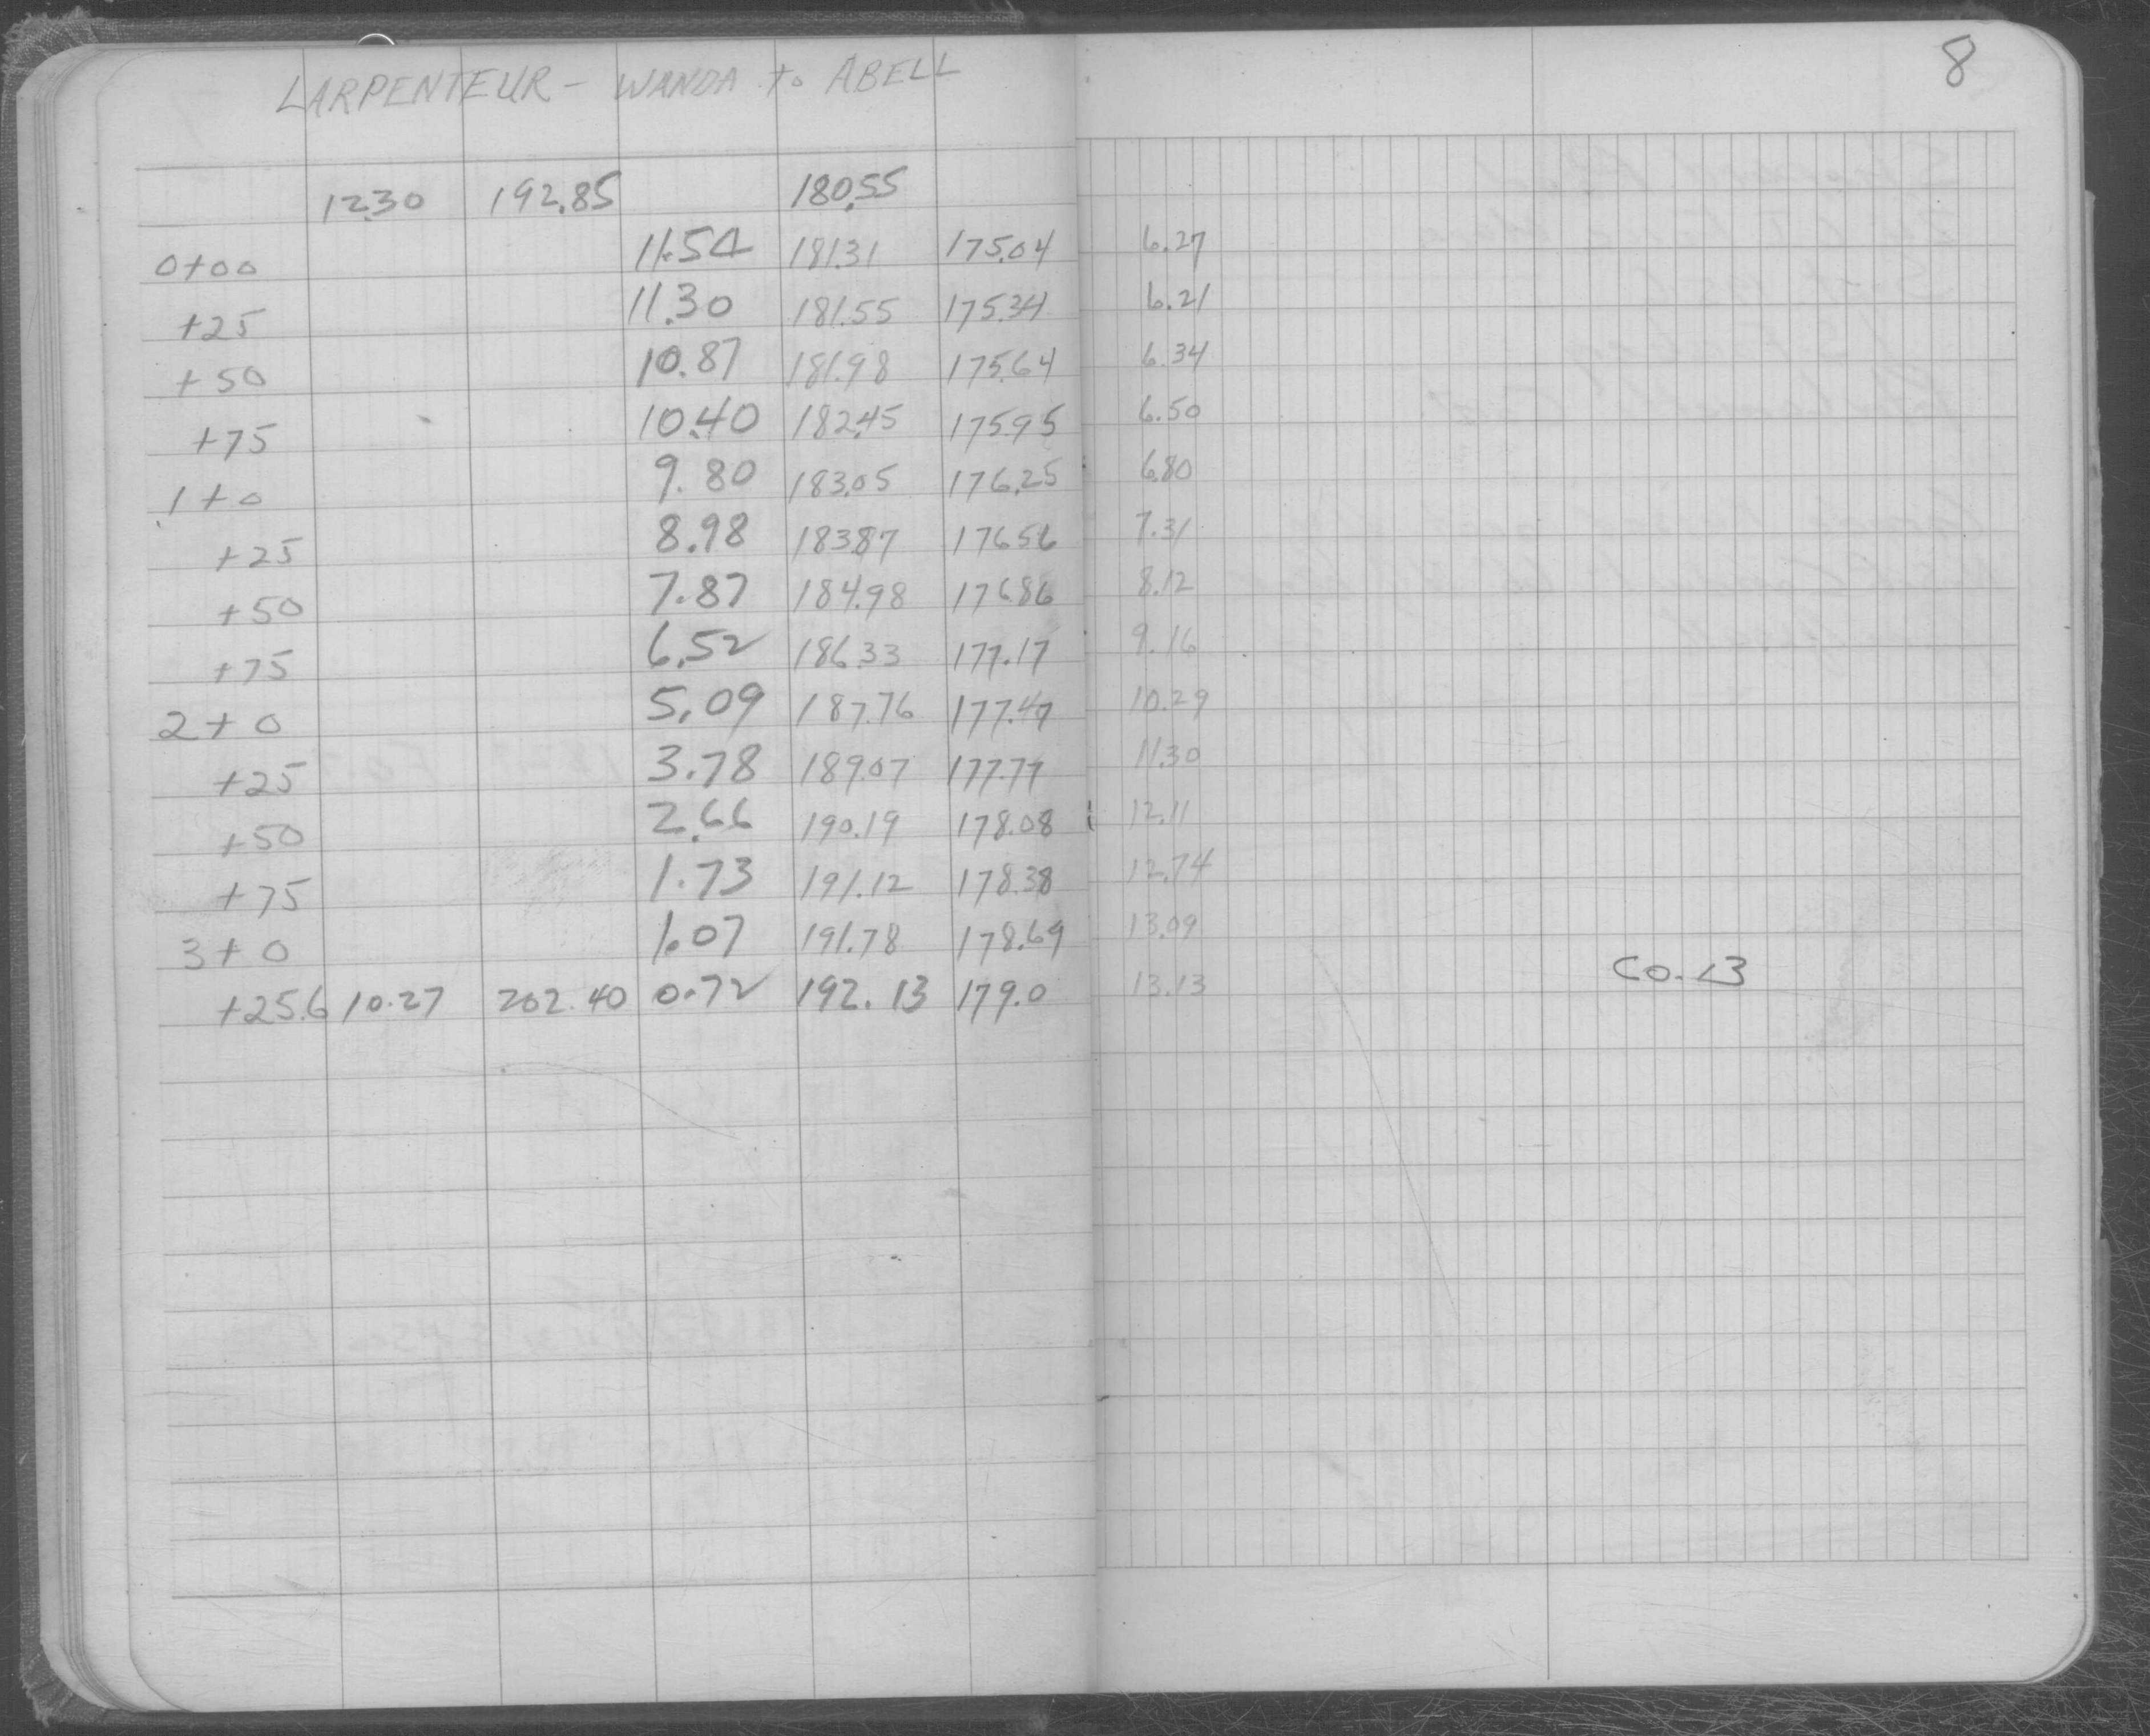 LARPENTEUR - WANDA to ABELL
8
12.30 192.85 180.55
0+00 11.54 181.31 175.04 6.27
+25 11.30 181.55 175.34 6.21
+50 10.87 181.98 175.64 6.34
+75 10.40 182.45 175.95 6.50
1+0 9.80 183.05 176.25 6.80
+25 8.98 183.87 176.56 7.31
+50 7.87 184.98 176.86 8.12
+75 6.52 186.33 177.17 9.16
2+0 5.09 187.76 177.47 10.29
+25 3.78 189.07 177.77 11.30
+50 2.66 190.19 178.08 12.11
+75 1.73 191.12 178.38 12.74
3+0 1.07 191.78 178.69 13.09
+25.6 10.27 202.40 0.72 192.13 179.0 13.13